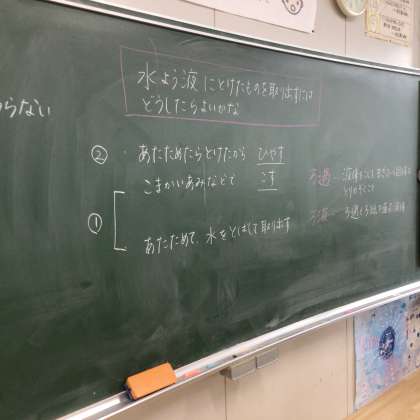 らない
水よう液にとけたものを取り出すには
どうしたらよいかな
② ・あたためたらとけたから ひやす
こまかいあみなどで こす
①
あたためて、水をとばして取り出す
ろ過
ろ液